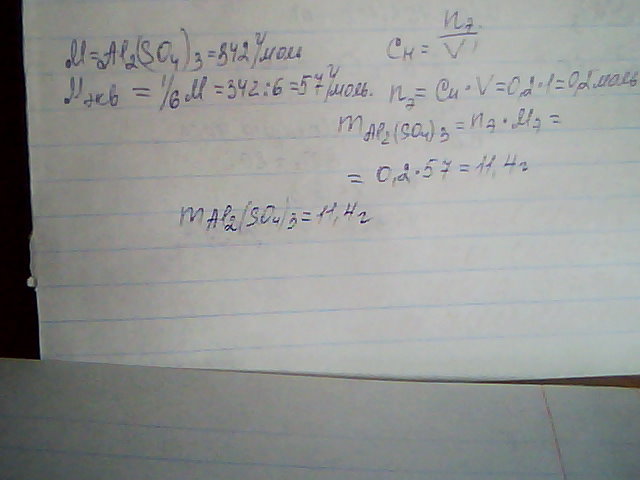 M=Al₂(SO₄)₃=342 г/моль
Mэкв = 1/6 M = 342:6 = 57 г/моль.
Cн = nэ/V
nэ = Cн · V = 0,2 · 1 = 0,2 моль
mAl₂(SO₄)₃ = nэ · Mэ =
= 0,2 · 57 = 11,4 г
mAl₂(SO₄)₃ = 11,4 г